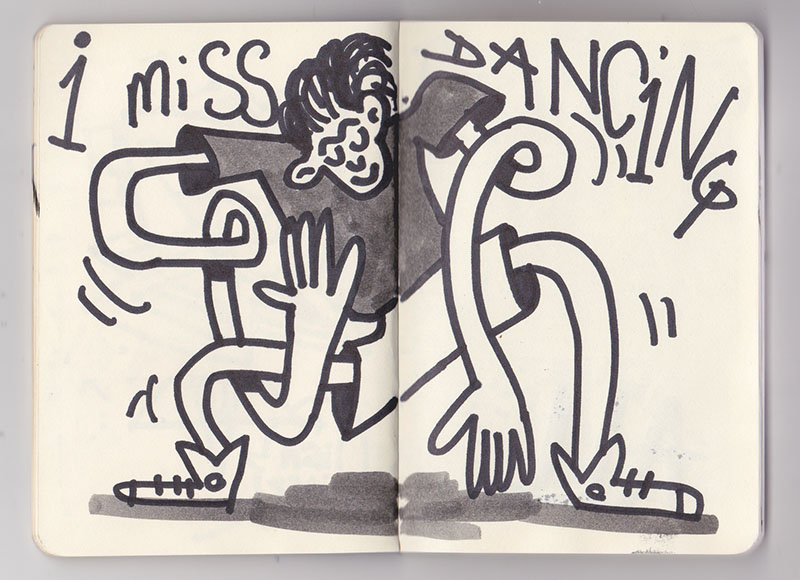 i miSS DANCiNG